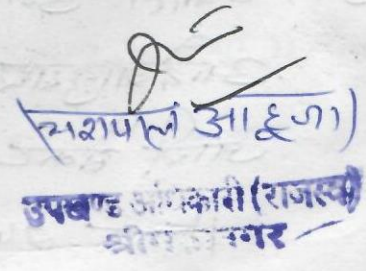 (यशपाल आहूजा)
उपखण्ड अधिकारी (राजस्व)
श्रीगंगानगर